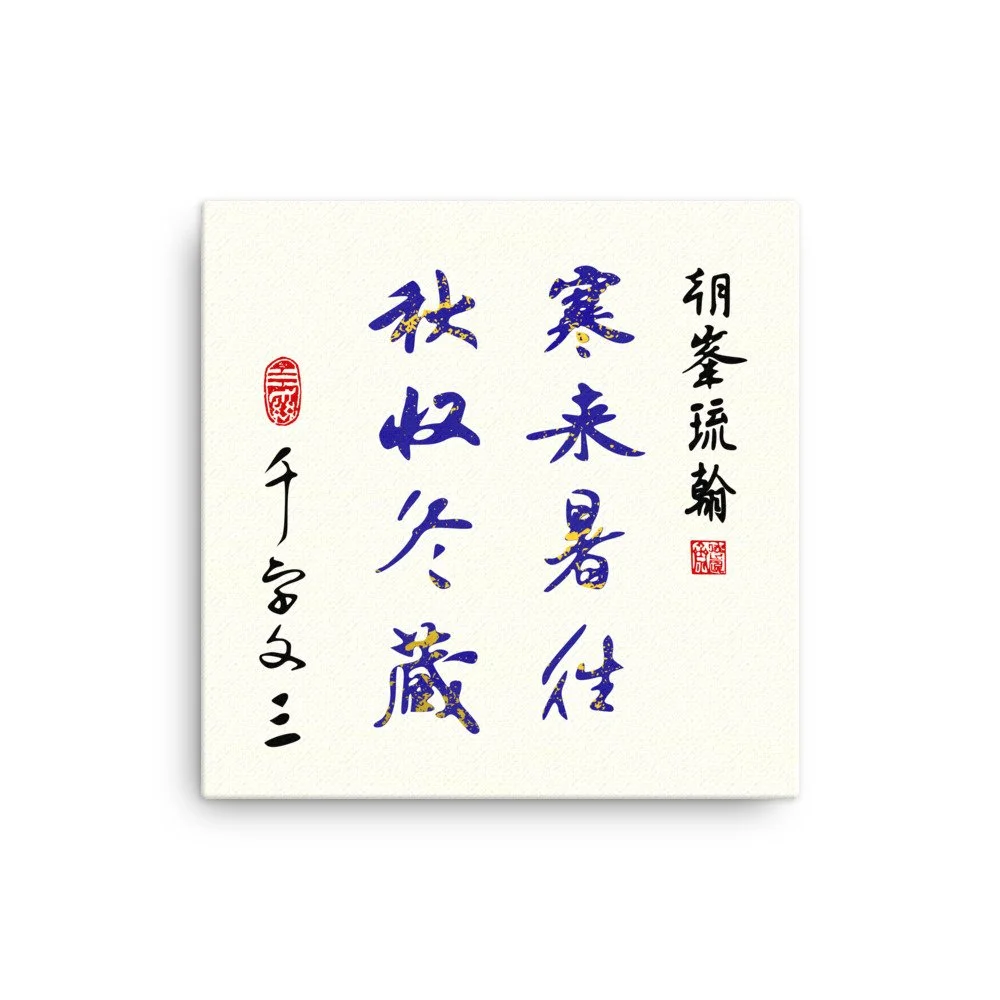 朝峯琉翰
寒来暑往
秋收冬藏
千字文三